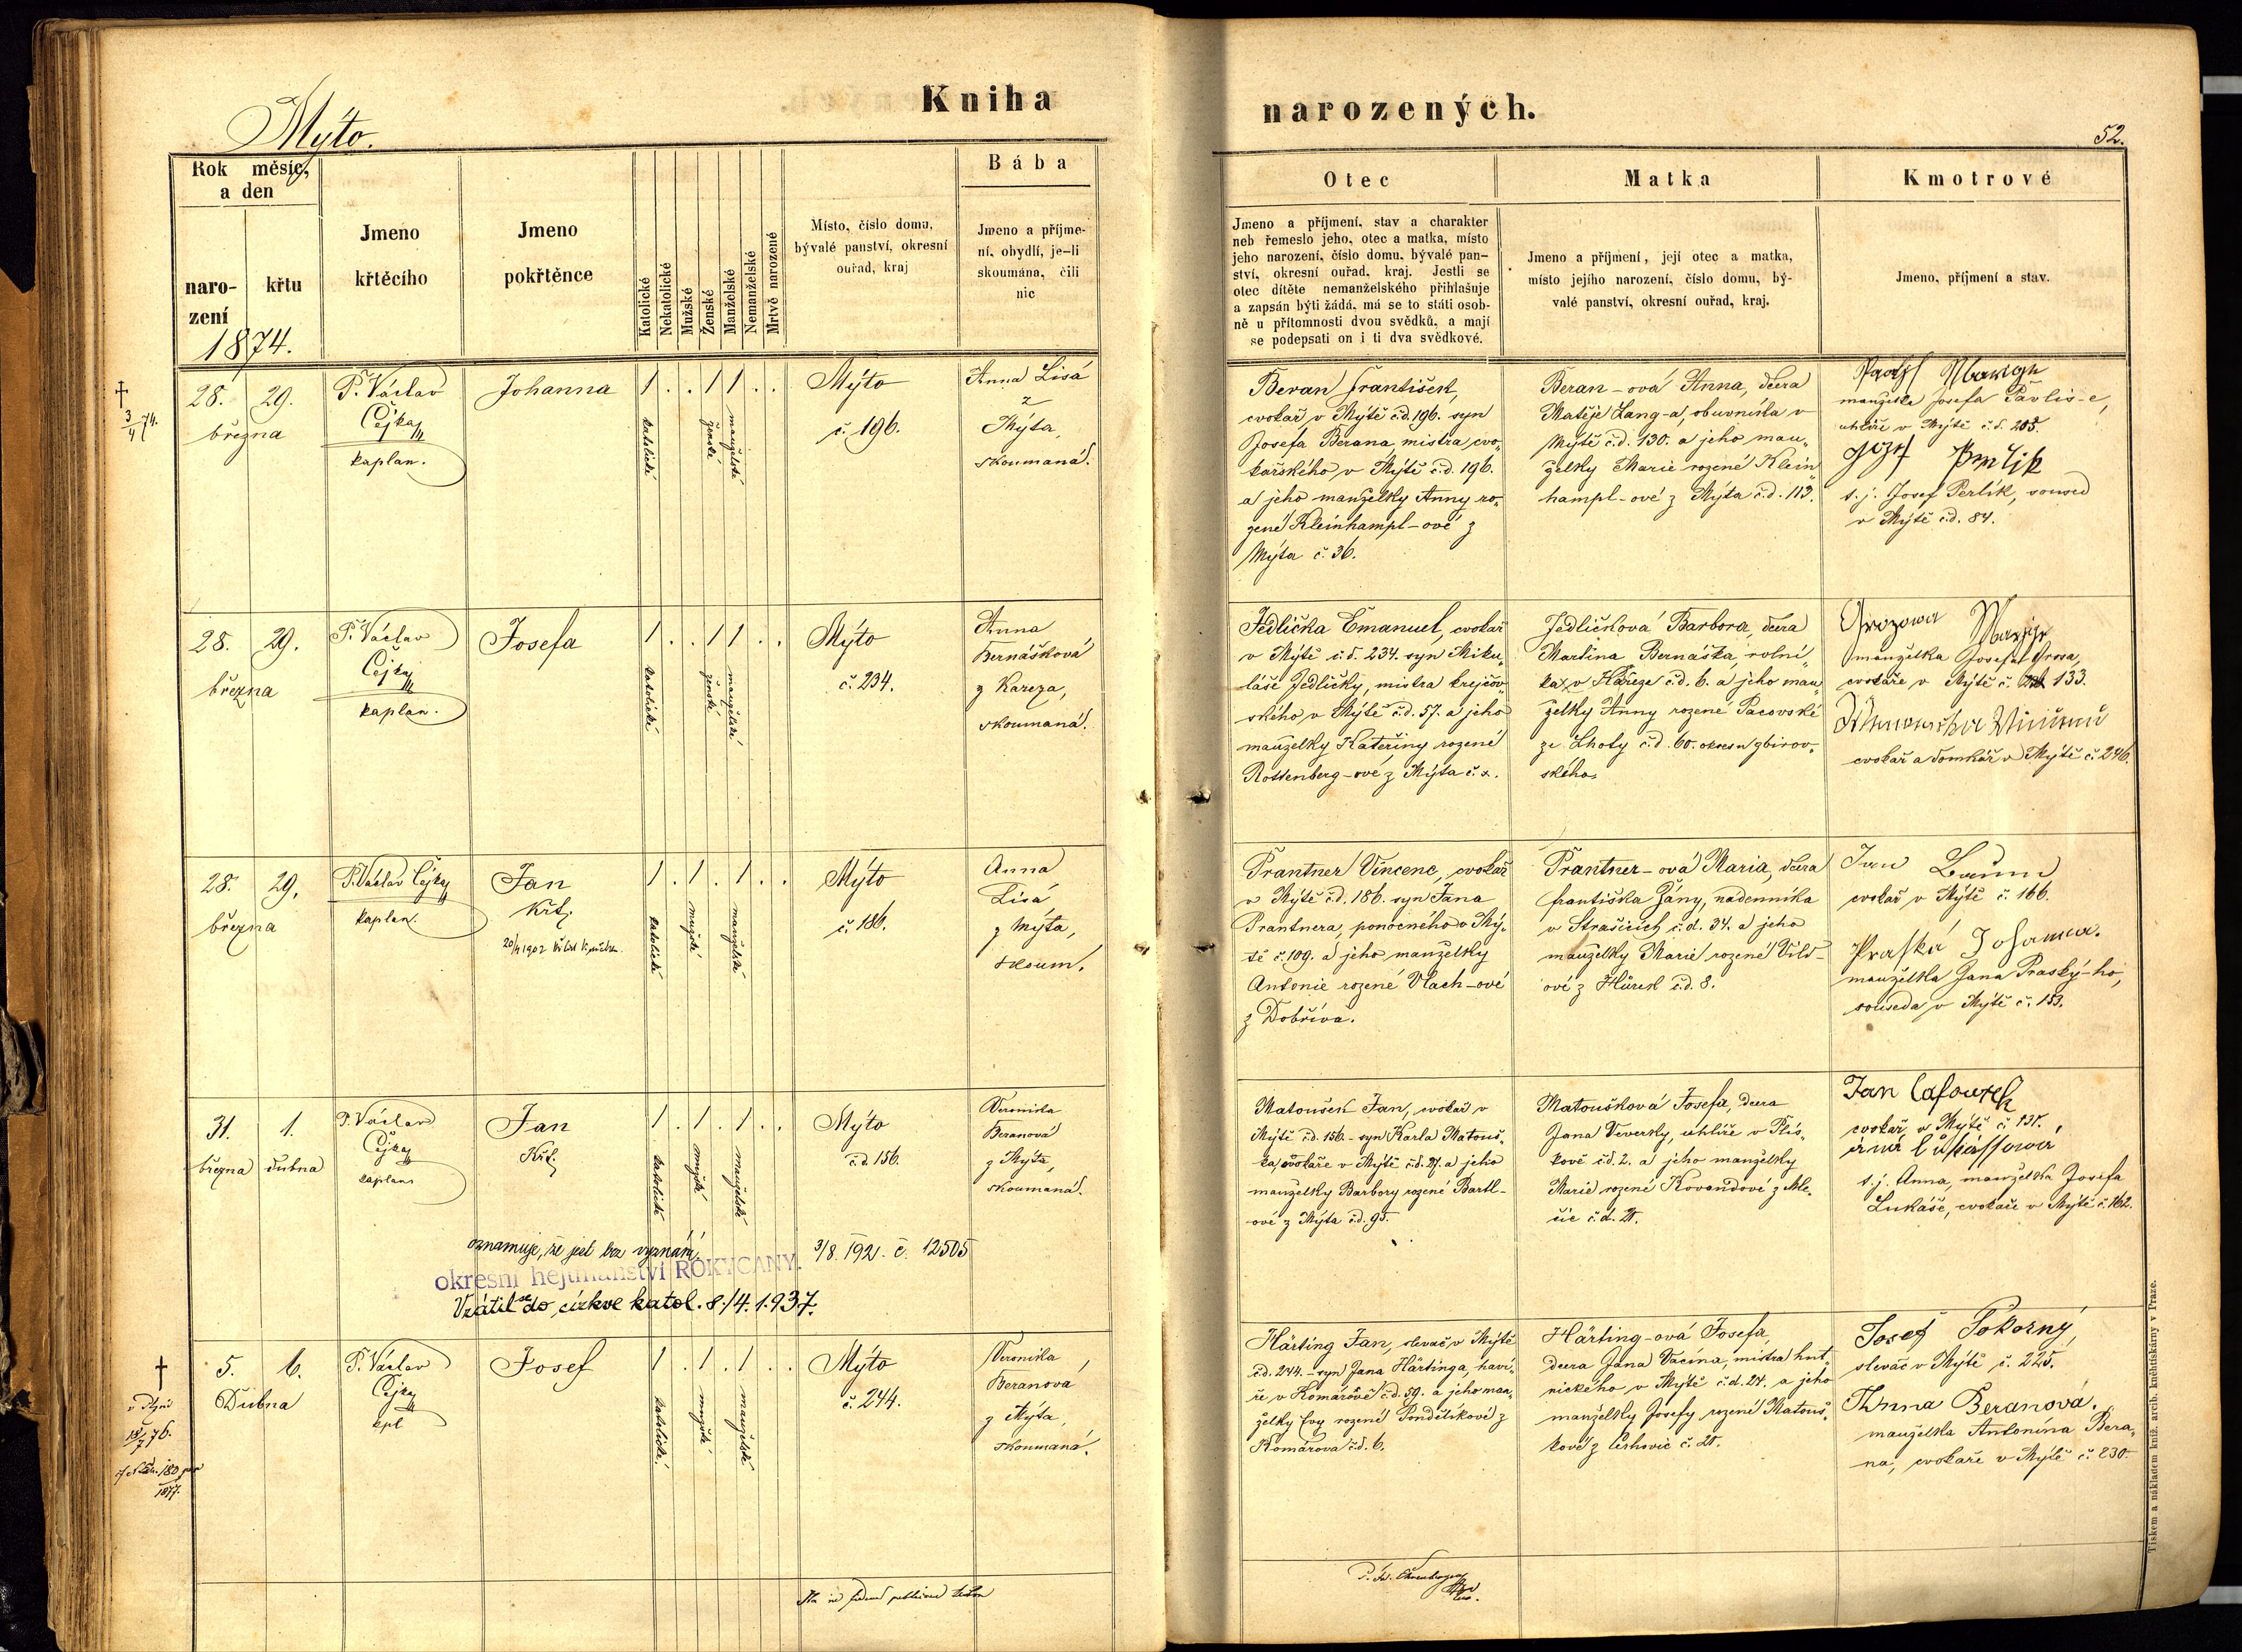 Kniha narozených.
Mýto.
52.
Rok měsíc, a den
narození
křtu
1874.
Jmeno křtěcího
Jmeno pokřtěnce
Katolické
Nekatolické
Mužské
Ženské
Manželské
Nemanželské
Mrtvě narozené
Místo, číslo domu,
bývalé panství, okresní
ouřad, kraj
Bába
Jmeno a příjme-
ní, obydlí, je-li
skoumána, čili
nic
Otec
Jmeno a příjmení, stav a charakter
neb řemeslo jeho, otec a matka, místo
jeho narození, číslo domu, bývalé pan-
ství, okresní ouřad, kraj. Jestli se
otec dítěte nemanželského přihlašuje
a zapsán býti žádá, má se to státi osob-
ně u přítomnosti dvou svědků, a mají
se podepsati on i ti dva svědkové.
Matka
Jmeno a příjmení, její otec a matka,
místo jejího narození, číslo domu, bý-
valé panství, okresní ouřad, kraj.
Kmotrové
Jmeno, příjmení a stav.
† 3/4 74.
28. 29.
března
P. Václav
Čejka
kaplan.
Johanna
1 . . 1 1 . .
katolické
ženské
manželské
Mýto
č. 196.
Anna Lisá
z
Mýta,
skoumaná.
Beran František,
cvokař v Mýtě č.d. 196. syn
Josefa Berana, mistra cvo-
kařského v Mýtě č.d. 196.
a jeho manželky Anny ro-
zené Kleinhampl-ové z
Mýta č. 36.
Beran-ová Anna, dcera
Matěje Lang-a, obuvníka v
Mýtě č.d. 130. a jeho man-
želky Marie rozené Klein
hampl-ové z Mýta č.d. 113.
manželka Josefa Pavlis-e,
uhlíře v Mýtě č.d. 205.
s.j. Josef Perlík, soused
v Mýtě č.d. 84.
28. 29.
března
P. Václav
Čejka
kaplan.
Josefa
1 . . 1 1 . .
katolické
ženské
manželské
Mýto
č. 234.
Anna
Bernášková
z Kareza,
skoumaná.
Jedlička Emanuel, cvokař
v Mýtě č.d. 234. syn Miku-
láše Jedličky, mistra krejčov-
ského v Mýtě č.d. 57. a jeho
manželky Kateřiny rozené
Rottenberg-ové z Mýta č. x.
Jedličková Barbora, dcera
Martina Bernáška, rolní-
ka v Kařeze č.d. 6. a jeho man-
želky Anny rozené Pacovské
ze Lhoty č.d. 60. okresu zbirov-
ského.
manželka Josefa Grosa,
cvokaře v Mýtě č. 133.
cvokař a domkář v Mýtě č. 246.
28. 29.
března
P. Václav Čejka
kaplan.
Jan
Křt.
1 . 1 . 1 . .
katolické
mužské
manželské
Mýto
č. 186.
Anna
Lisá
z Mýta,
skoum.
Prantner Vincenc, cvokař
v Mýtě č.d. 186. syn Jana
Prantnera, ponocného v Mý-
tě č. 109. a jeho manželky
Antonie rozené Vlach-ové
z Dobříva.
Prantner-ová Maria, dcera
Františka Zány, nádenníka
v Strašicích č.d. 34. a jeho
manželky Marie rozené Vild-
ové z Hůrek č.d. 8.
cvokař v Mýtě č. 166.
Praská Johanna.
manželka Jana Praský-ho,
souseda v Mýtě č. 153.
31. 1.
března dubna
P. Václav
Čejka
kaplan
Jan
Křt.
1 . 1 . 1 . .
katolické
mužské
manželské
Mýto
č.d. 156.
Veronika
Beranová
z Mýta,
skoumaná.
Matoušek Jan, cvokař v
Mýtě č.d. 156. - syn Karla Matouš-
ka, cvokaře v Mýtě č.d. 27. a jeho
manželky Barbory rozené Bartl-
ové z Mýta č.d. 95.
Matoušková Josefa, dcera
Jana Veverky, uhlíře v Plís-
kově č.d. 2. a jeho manželky
Marie rozené Kovandové z Mle-
čic č.d. 21.
Jan Cafourek
cvokař v Mýtě č. 131.
s.j. Anna, manželka Josefa
Lukáše, cvokaře v Mýtě č. 162.
oznamuje, že jest bez vyznání. 3/8. 1921. č. 12505
okresní hejtmanství ROKYCANY.
Vrátil se do církve katol. 8./4. 1937.
†
5. 6.
Dubna
P. Václav
Čejka
kpl
Josef
1 . 1 . 1 . .
katolické
mužské
manželské
Mýto
č. 244.
Veronika
Beranova
z Mýta,
skoumaná.
Härting Jan, slevač v Mýtě
č.d. 244. - syn Jana Härtinga, haví-
ře v Komárově č.d. 59. a jeho man-
želky Evy rozené Pondělíkové z
Komárova č.d. 6.
Härting-ová Josefa,
dcera Jana Vacína, mistra hut-
nického v Mýtě č.d. 24. a jeho
manželky Josefy rozené Matouš-
kové z Cerhovic č. 21.
Josef Pokorný,
slevač v Mýtě č. 225.
Anna Beranová.
manželka Antonína Bera-
na, cvokaře v Mýtě č. 230.
Tiskem a nákladem kníž. arcib. knihtiskárny v Praze.